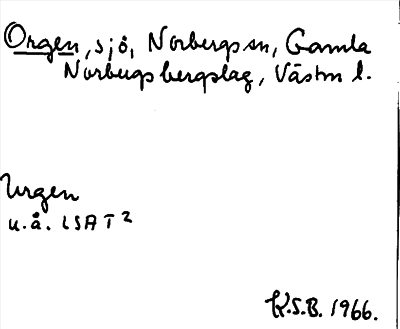 Orgen, sjö, Norbergs sn, Gamla
Norbergs bergslag, Västm l.
Urgen
u.å. LSA T2
K.S.B. 1966.